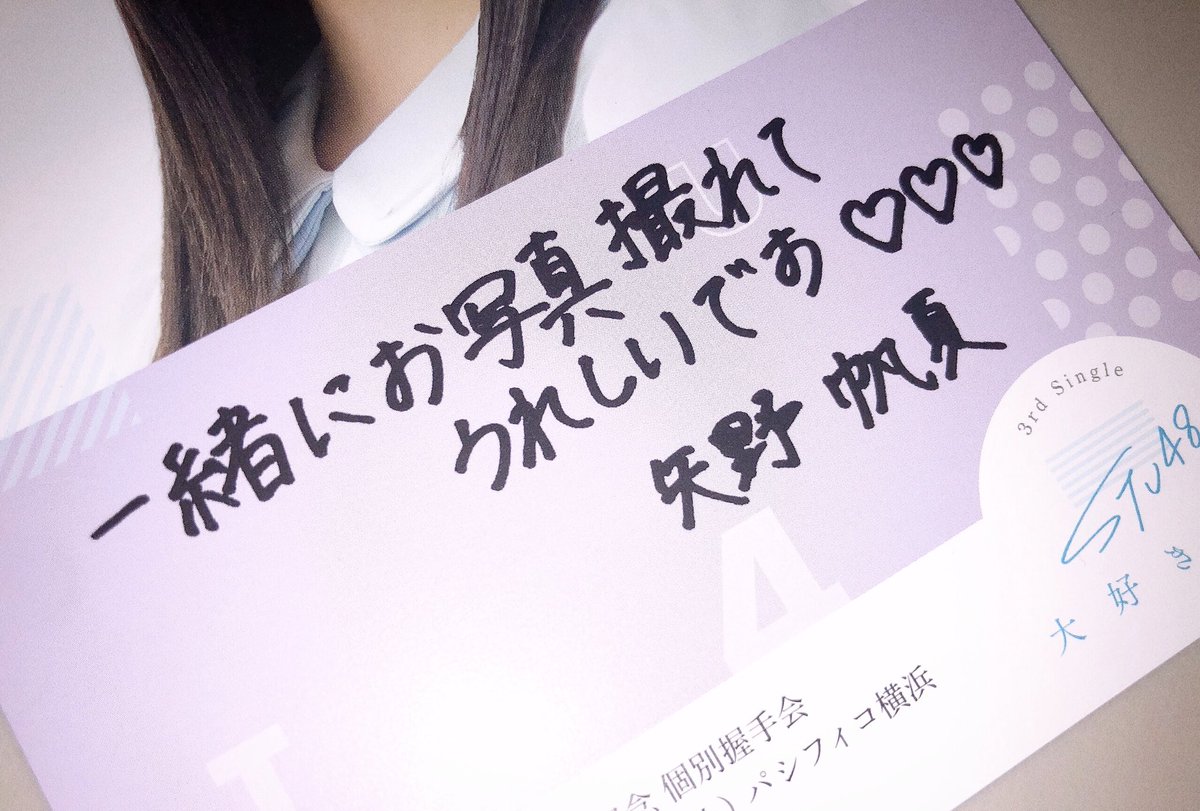 一緒にお写真撮れて
うれしいです♡♡♡
矢野帆夏
3rd Single
STU48
大好き
個別握手会
) パシフィコ横浜